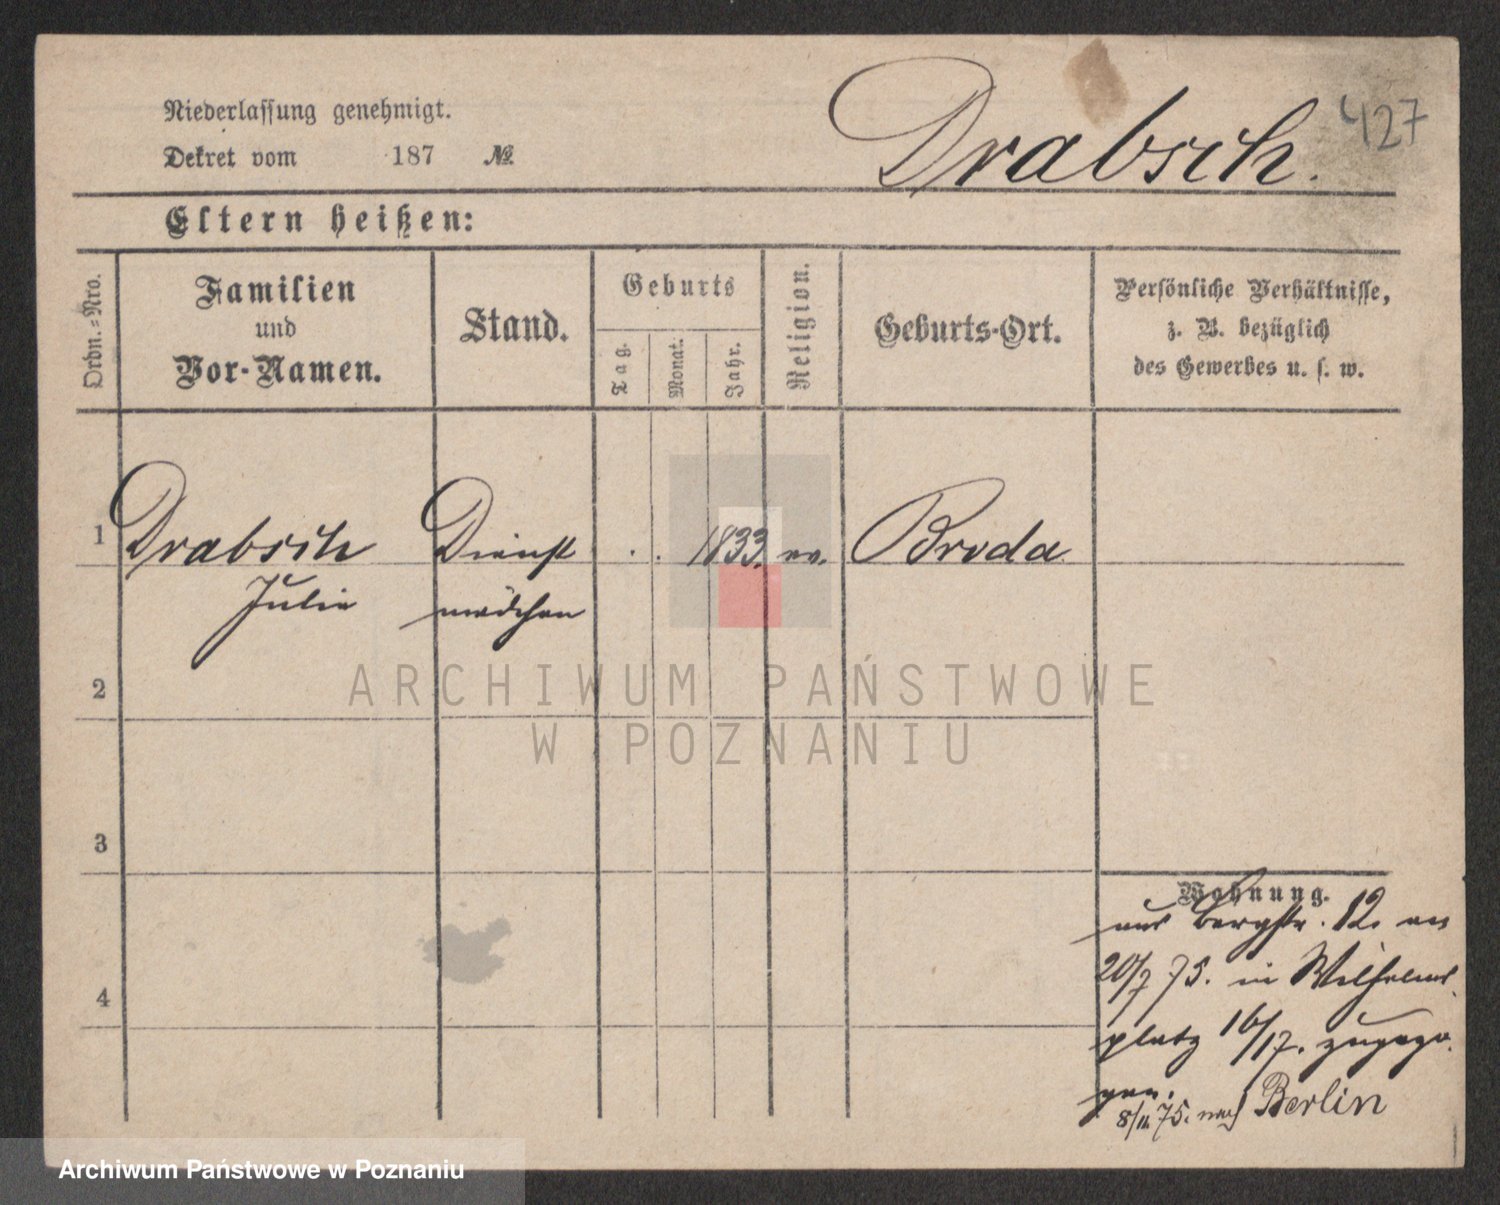 Niederlassung genehmigt.
Dekret vom 187 №
Drabsch.
427
Eltern heißen:
Ordn.=Nro.
Familien
und
Vor-Namen.
Stand.
Geburts
Tag.
Monat.
Jahr.
Religion.
Geburts-Ort.
Persönliche Verhältnisse,
z. B. bezüglich
des Gewerbes u. s. w.
1 Drabsch Dienst . . 1833. ev. Broda
Julie mädchen
ARCHIWUM PAŃSTWOWE
W POZNANIU
2
3
4
Wohnung.
aus Bergstr. 12. am
20/7 75. in Wilhelms
platz 16/17. zugezo
gen.
8/11 75. nach Berlin
Archiwum Państwowe w Poznaniu